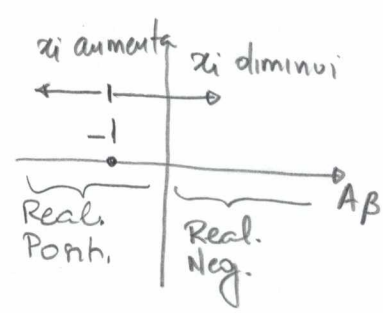 xi aumenta
xi diminui
-1
Aβ
Real.
Ponh.
Real.
Neg.